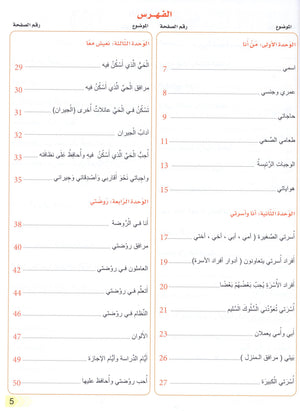 الفهرس
الموضوع رقم الصفحة
الوحدة الأولى: مَنْ أنا
اسمي 7
عمري وجنسي 8
حاجاتي 9
طعامي الصّحي 11
الوجبات الرّئيسة 13
هواياتي 15
الوحدة الثانية: أنا وأسرتي
أسرتي الصّغيرة ( أمي ، أبي ، أخي ، أختي 17
أفراد أسرتي يتعاونون ( أدوار أفراد الأسرة) 19
أفراد الأُسْرَةِ يُحِبّ بَعْضُهُمْ بَعْضًا 20
أُسْرَتي تُعوّدُني السُّلوكَ السَّليم 21
أبي وأُمي يعملان 23
بيتي ( مرافق المنزل ) 26
أُسْرَتي الكَبيرة 27
الموضوع رقم الصفحة
الوَحدة الثّالثة: نَعيش معًا
الحَيّ الّذي أَسْكُنُ فيه 29
مرافق الحَيّ الّذي أَسْكُنُ فيه 30
تَسْكُنُ في الحَيّ عائلاتٌ أُخرى (الجيران) 31
آدابُ الجيران 32
أُحِبُّ الحَيَّ الّذي أَسْكُنُ فيه وأُحافظُ على نظافته 33
واجباتي نَحْوَ أقاربي وأصْدِقائي وجيراني 35
الوَحدة الرّابعة: رَوْضتي
أنا في الرّوْضة 38
مَرافق رَوْضتي 40
العاملون في رَوْضتي 42
أتعلّم في رَوْضتي 44
النّظام في رَوْضتي 46
الألوان 47
أيّام الدّراسة وأيّام الإجازة 49
أُحب رَوْضتي وأُحافظ عليها 50
5